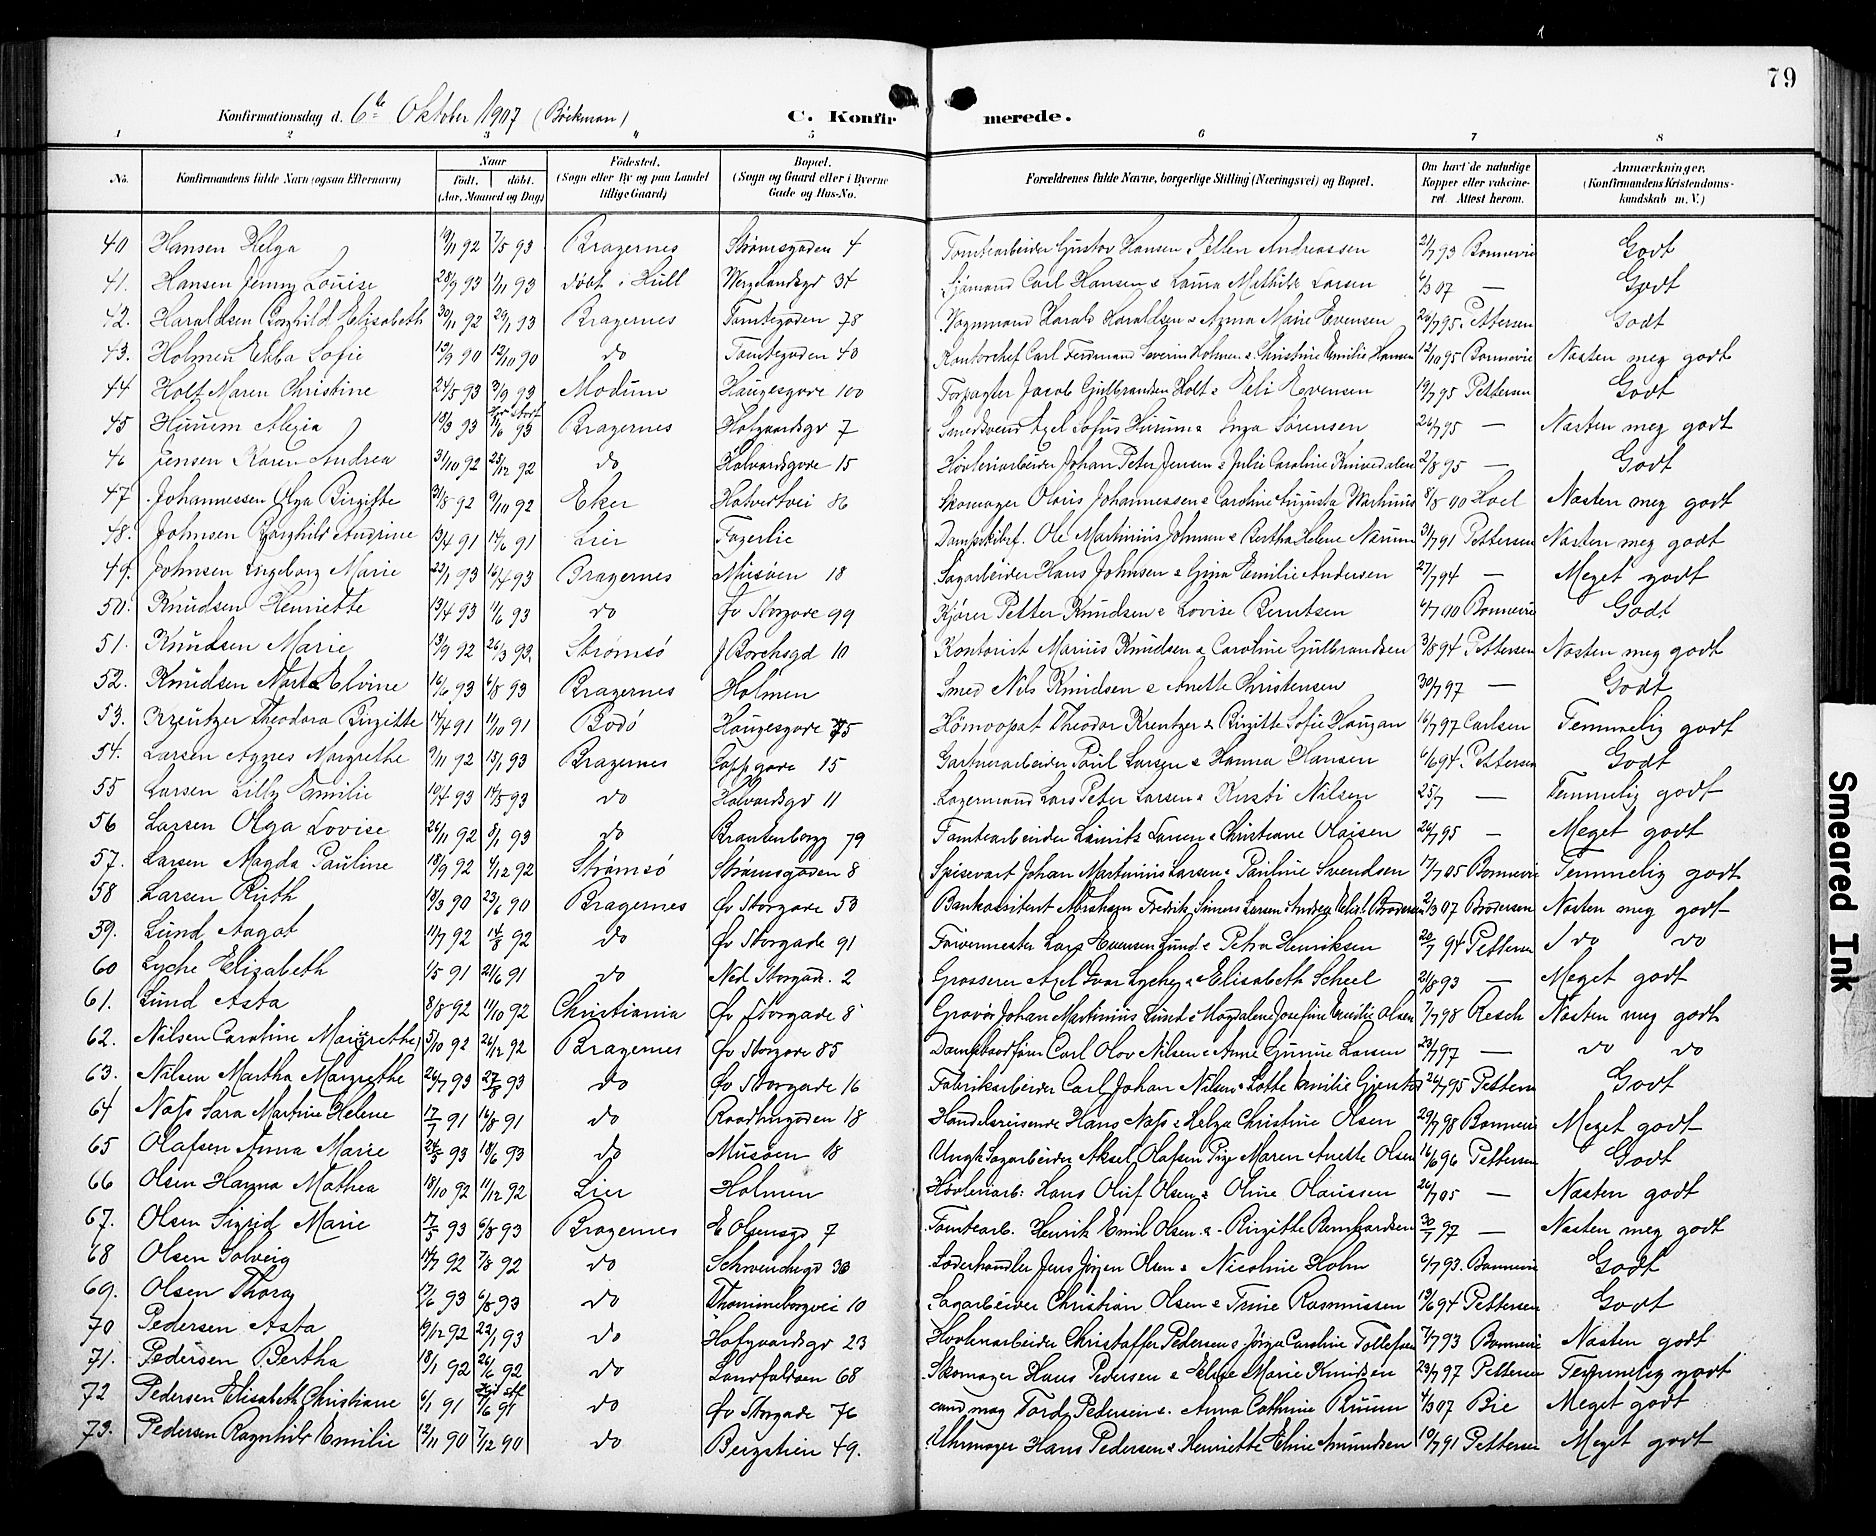 79
Konfirmationsdag d. 6te Oktober 1907 (Böckman) C. Konfirmerede.
1 2 3 4 5 6 7 8
No. Konfirmandens fulde Navn (ogsaa Efternavn) Naar födt. döbt. (Aar, Maaned og Dag) Födested. (Sogn eller By og paa Landet tillige Gaard) Bopæl. (Sogn og Gaard eller i Byerne Gade og Hus-No. Forældrenes fulde Navne, borgerlige Stilling (Næringsvei) og Bopæl. Om havt de naturlige Kopper eller vakcineret Attest herom. Anmærkninger. (Konfirmandens Kristendomskundskab m. V.)
40 Hansen Helga 19/11 92 7/5 93 Bragernes Strömsgaden 4 Tomtearbeider Gustav Hansen & Ellen Andreassen 21/7 93 Bonnevie Godt
41. Hansen Jenny Louise 28/9 93 1/11 93 döbt i Hull Wergelandsgd 34 Sjömand Carl Hansen & Laura Mathilde Larsen 6/3 07 — Godt
42. Haraldsen Borghild Elisabeth 30/11 92 29/1 93 Bragernes Tomtegaden 78 Vognmand Harald Haraldsen & Anna Marie Evensen 26/7 95 Pettersen Godt
43. Holmen Ebba Sofie 12/9 90 12/10 90 do Tomtegaden 40 Kontorchef Carl Ferdinand Severin Holmen & Christine Emilie Hansen 12/10 95 Bonnevie Næsten meg godt
44 Holt Maren Christine 24/5 93 3/9 93 Modum Haugesgade 100 Forpagter Jacob Gulbrandsen Holt & Eli Evensen 19/7 95 Pettersen Godt
45 Huum Alexia 18/3 93 11/6 93 Bragernes Hofgaardsgd 7 Smedsvend Axel Sofus Huum & Inga Sörensen 26/7 95 — Næsten meg godt
46 Jensen Karen Andrea 31/10 92 25/12 92 do Halvardsgade 15 Hövleriarbeider Johan Peter Jensen & Julie Caroline Knivedalen 2/8 95 — Godt
47. Johannessen Olga Birgitte 31/8 92 9/10 92 Eker Hotvedtvei 86 Skomager Olaus Johannessen & Caroline Augusta Warhuus 8/5 00 Hoel Næsten meg godt
48. Johnsen Borghild Andrine 13/4 91 14/6 91 Lier Fagerlie Dampskibsf. Ole Martinius Johnsen & Bertha Helene Narum 31/7 91 Pettersen Næsten meg godt
49. Johnsen Ingeborg Marie 22/1 93 16/4 93 Bragernes Müsöen 18 Sagarbeider Hans Johnsen & Gina Emilie Andersen 27/7 94 — Meget godt
50. Knudsen Henriette 13/4 93 11/6 93 do Öv Storgade 99 Kjörer Petter Knudsen & Lovise Berntsen 6/7 00 Bonnevie Godt
51. Knudsen Marie 13/9 92 26/3 93. Strömsö J Borchsgd 10 Kontorist Marius Knudsen & Caroline Gulbrandsen 3/8 94 Pettersen Næsten meg godt
52. Knudsen Marta Elvine 16/6 93 6/8 93 Bragernes Holmen Smed Nils Knudsen & Anette Christensen 30/7 97 — Godt
53. Kreutzer Theodora Birgitte 14/4 91 11/10 91 Bodö Haugesgade 75 Hömoopat Theodor Kreutzer & Birgitte Sofie Haugan 16/7 97 Carlsen Temmelig godt
54. Larsen Agnes Margrethe 9/11 92 15/1 93 Bragernes Coppgade 15 Gartnerarbeider Paul Larsen & Hanna Hansen 6/6 94 Pettersen Godt
55 Larsen Lilly Emilie 10/4 93 14/5 93 do Halvardsgd 11 Lagermand Lars Peter Larsen & Kirsti Nilsen 25/7 — Temmelig godt
56 Larsen Olga Lovise 26/11 92 8/1 93 do Brantenborg 79 Tomtearbeider Laurits Larsen & Christiane Olaisen 26/7 95 — Meget godt
57. Larsen Magda Pauline 18/9 92 4/12 92 Strömsö Strömsgaden 8 Spisevært Johan Martinius Larsen & Pauline Svendsen 17/7 05 Bonnevie Temmelig godt
58 Larsen Ruth 18/3 90 22/6 90 Bragernes Öv Storgade 53 Bankassistent Abraham Fredrik Simers Larsen & Andrea Brodersen 2/3 07 Brodersen Næsten meg godt
59. Lund Aagot 11/7 92 14/8 92 do Öv Storgade 91 Farvermester Lars Evensen Lund & Petra Henriksen 20/7 94 Pettersen do do
60 Lyche Elizabeth 1/5 91 21/6 91 do Ned Storgad. 2 Grosserer Axel Ivar Lyche & Elisabeth Scheel 21/8 93 — Meget godt
61. Lund Asta 8/8 92 11/10 92 Christiania Öv Storgade 8 Gravör Johan Martinius Lund & Magdalene Josefine Emilie Olsen 7/7 98 Resch Næsten meg godt
62. Nilsen Caroline Margrethe 5/10 92 26/12 92 Bragernes Öv Storgade 85 Dampbaadförer Carl Olov Nilsen & Anne Gurine Larsen 23/7 97 — do do
63. Nilsen Martha Margrethe 26/7 93 27/8 93 do Öv Storgade 16 Fabrikarbeider Carl Johan Nilsen & Lotte Emilie Gjerstad 26/7 95 Pettersen Godt
64 Næss Sara Martine Helene 17/7 91 16/8 91 do Raadhusgaden 18 Handelsreisende Hans Næss & Helga Christine Olsen 29/7 98 Bonnevie Meget godt
65 Olafsen Anna Marie 24/3 93 18/6 93 do Müsöen 18 Ungk Sagarbeider Aksel Olafsen Pige Maren Anette Olsen 16/6 96 Pettersen Godt
66 Olsen Hanna Mathea 18/10 92 11/12 92 Lier Holmen Hövleriarb: Hans Oluf Olsen & Oline Olaussen 26/7 05 — Næsten godt
67. Olsen Sigrid Marie 17/5 93 6/8 93 Bragernes E Olsensgd 7 Tomtearb. Henrik Emil Olsen & Birgitte Berntgardsen 30/7 97 — Næsten meg godt
68 Olsen Solveig 14/7 92 7/8 92 do Schwenchegd 33 Læderhandler Jens Jörgen Olsen & Nicoline Holm 6/7 93. Bonnevie Godt
69. Olsen Thora 17/6 93 6/8 93 do Thorineborgvei 10 Sagarbeider Christian Olsen & Trine Rasmussen 19/6 94 Pettersen Godt
70 Pedersen Asta 19/12 92 22/1 93 do Hofgaardsgd 23 Hövleriarbeider Christoffer Pedersen & Jörga Caroline Tollefsen 7/7 93 Bonnevie Næsten godt
71. Pedersen Bertha 18/1 92 26/6 92 do Landfaldsen 68 Skomager Hans Pedersen & Eline Marie Knudsen 23/7 97 Pettersen Temmelig godt
72 Pedersen Elisabeth Christiane 6/1 91 1/6 91 do Öv Storgade 76 cand mag Tord Pedersen & Anna Cathrine Ruum 4/3 07 Bie Meget godt
73. Pedersen Ragnhild Emilie 12/11 90 7/12 90 do Bergstien 49. Uhrmager Hans Pedersen & Henriette Eline Amundsen 10/7 91 Pettersen Meget godt
Smeared Ink